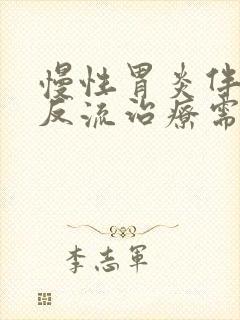 慢性胃炎伴
反流治疗需
李志军